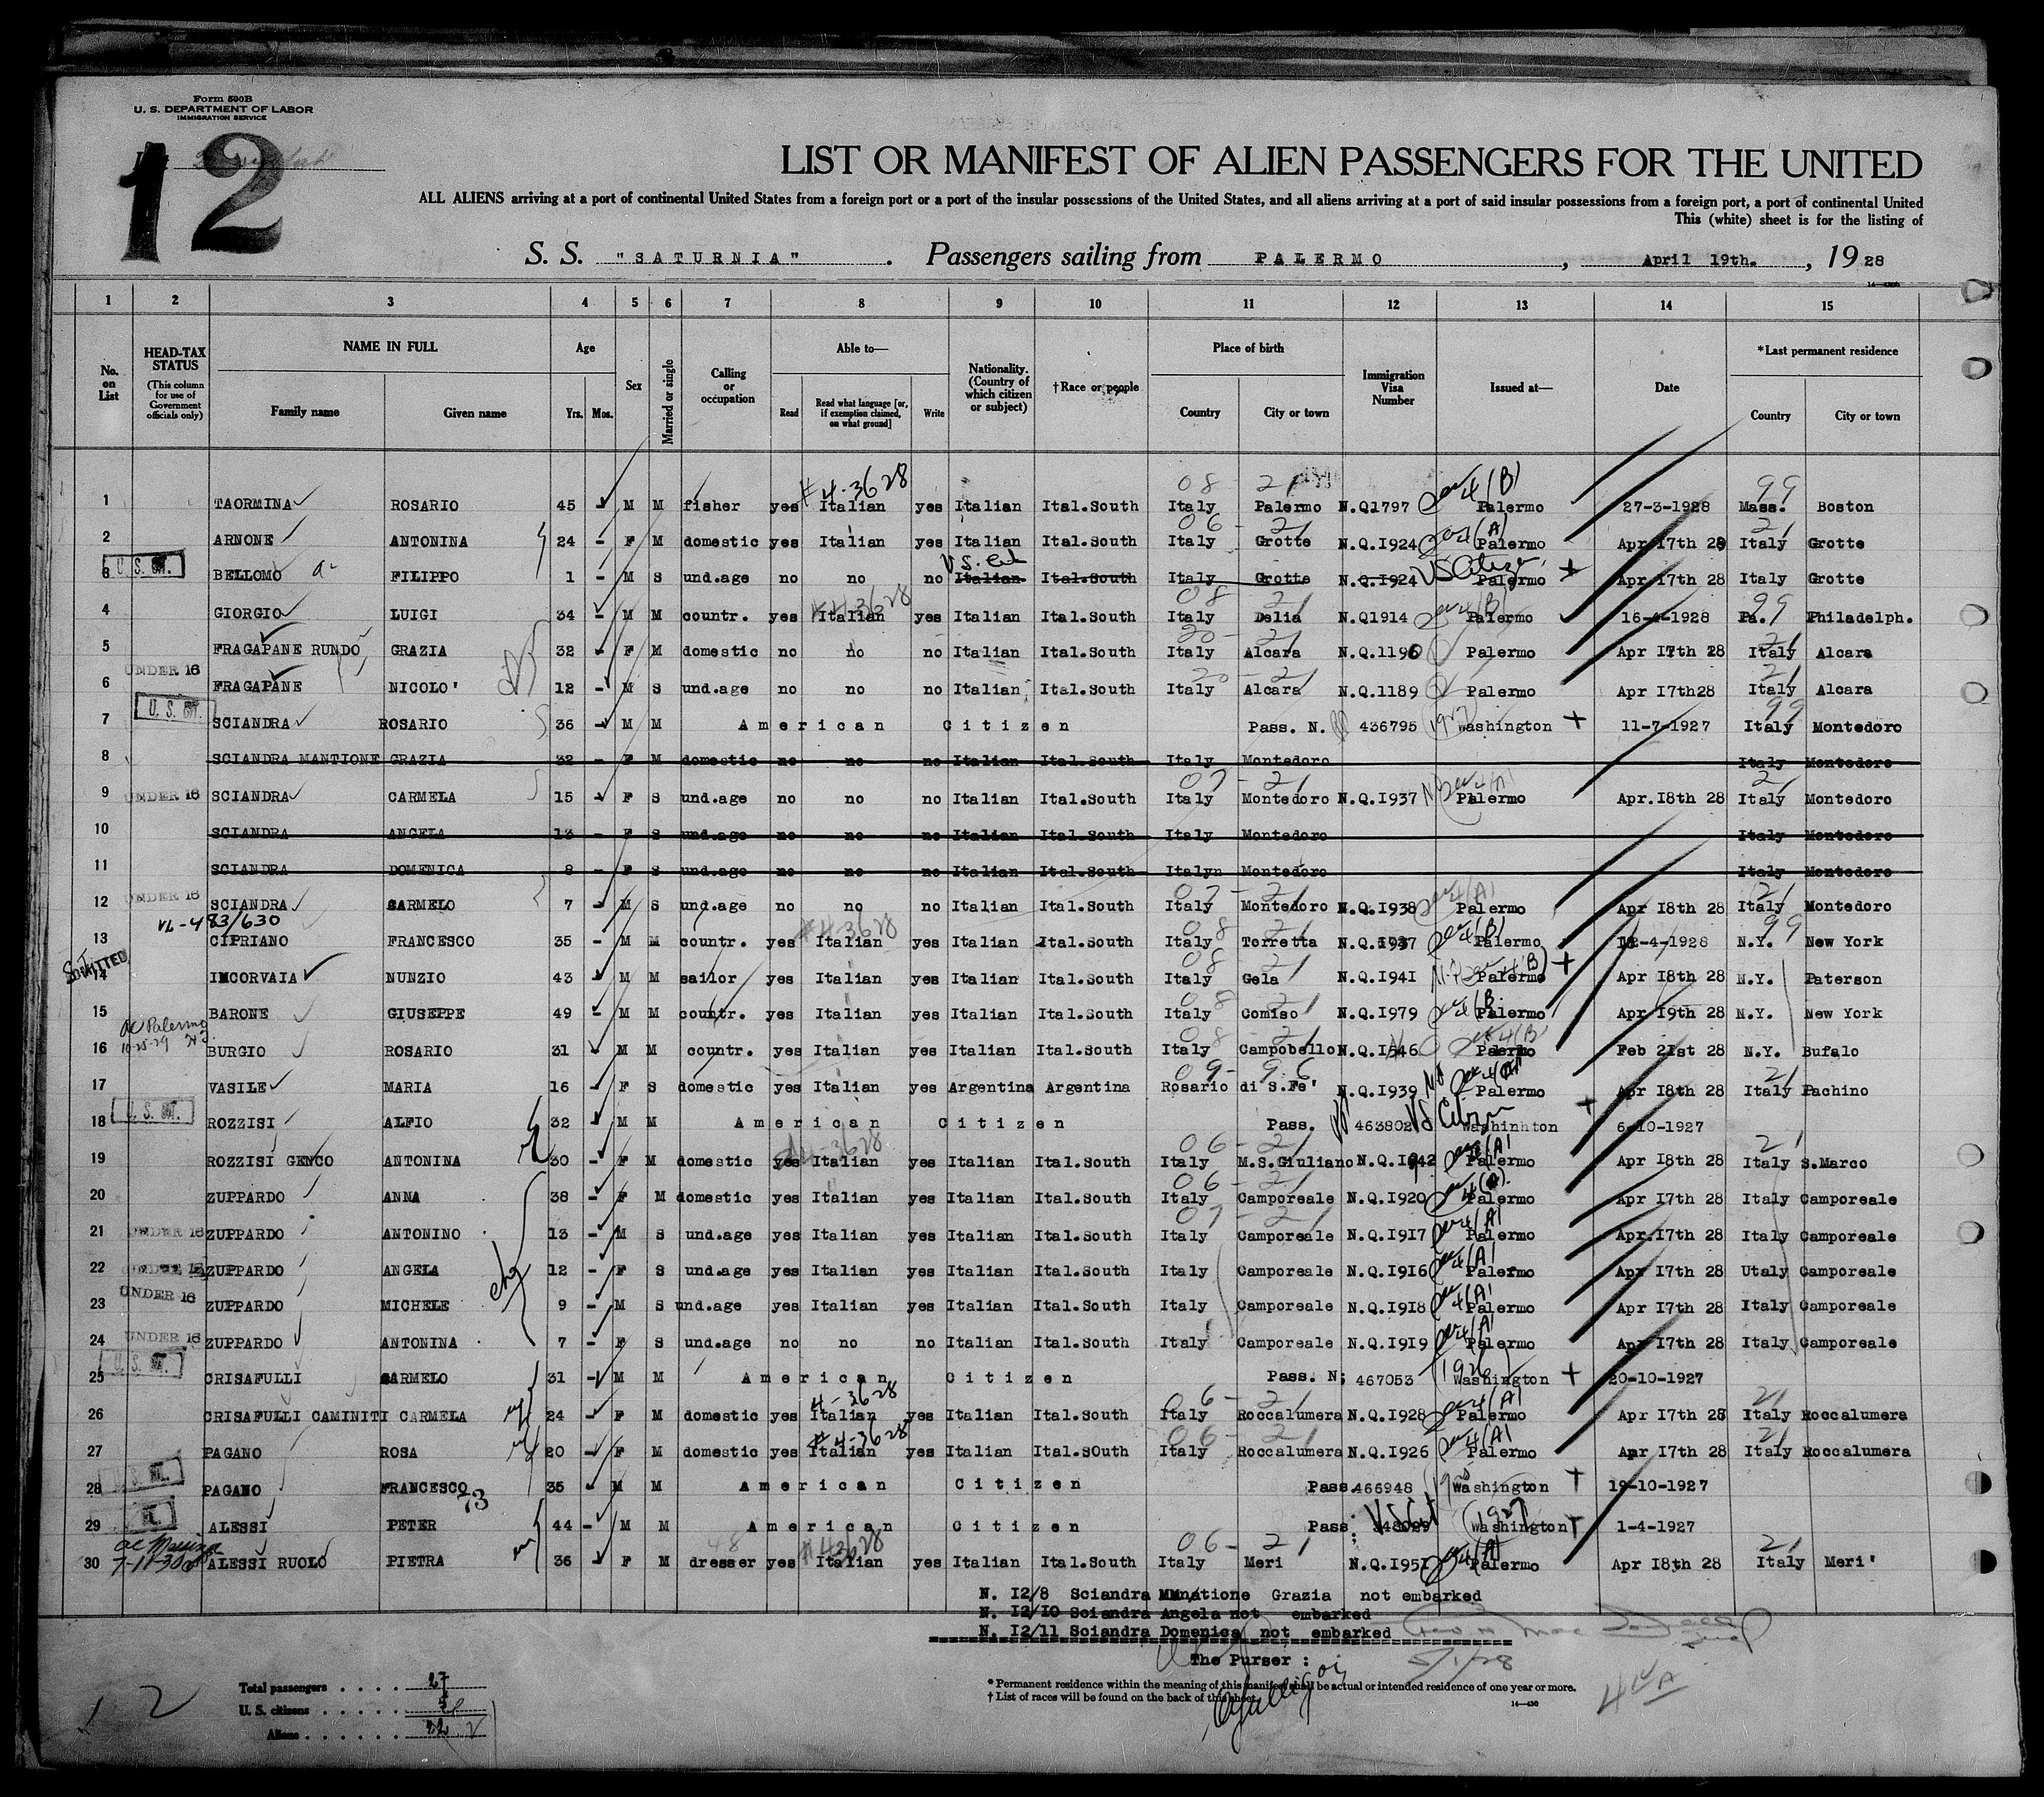 Form 500B
U. S. DEPARTMENT OF LABOR
IMMIGRATION SERVICE
12
LIST OR MANIFEST OF ALIEN PASSENGERS FOR THE UNITED
ALL ALIENS arriving at a port of continental United States from a foreign port or a port of the insular possessions of the United States, and all aliens arriving at a port of said insular possessions from a foreign port, a port of continental United
This (white) sheet is for the listing of
S. S. "SATURNIA" . Passengers sailing from PALERMO , April 19th. , 1928
1 2 3 4 5 6 7 8 9 10 11 12 13 14 15
No. on List HEAD-TAX STATUS (This column for use of Government officials only) NAME IN FULL Family name Given name Age Yrs. Mos. Sex Married or single Calling or occupation Able to— Read Read what language [or, if exemption claimed, on what ground] Write Nationality. (Country of which citizen or subject) †Race or people Place of birth Country City or town Immigration Visa Number Issued at— Date *Last permanent residence Country City or town
1 TAORMINA ROSARIO 45 - M M fisher yes Italian yes Italian Ital.South Italy Palermo N.Q1797 Palermo 27-3-1928 Mass. Boston
2 ARNONE ANTONINA 24 - F M domestic yes Italian yes Italian Ital.South Italy Grotte N.Q.I924 Palermo Apr 17th 28 Italy Grotte
3 U. S. CIT. BELLOMO FILIPPO 1 - M S und.age no no no Italian Ital.South Italy Grotte N.Q.I924 US Citizen Palermo Apr 17th 28 Italy Grotte
4 GIORGIO LUIGI 34 - M M countr. yes Italian yes Italian Ital.South Italy Delia N.Q1914 Palermo 16-4-1928 Pa. Philadelph.
5 FRAGAPANE RUNDO GRAZIA 32 - F M domestic no no no Italian Ital.South Italy Alcara N.Q.1190 Palermo Apr 17th 28 Italy Alcara
6 UNDER 16 FRAGAPANE NICOLO' 12 - M S und.age no no no Italian Ital.South Italy Alcara N.Q.1189 Palermo Apr I7th28 Italy Alcara
7 U. S. CIT. SCIANDRA ROSARIO 36 - M M American Citizen Pass. N. 436795 Washington 11-7-1927 Italy Montedoro
8 SCIANDRA MANTIONE GRAZIA 32 - F M domestic no no no Italian Ital.South Italy Montedoro Italy Montedoro
9 UNDER 16 SCIANDRA CARMELA 15 - F S und.age no no no Italian Ital.South Italy Montedoro N.Q.I937 Palermo Apr.I8th 28 Italy Montedoro
10 SCIANDRA ANGELA 13 - F S und.age no no no Italian Ital.South Italy Montedoro Italy Montedoro
11 SCIANDRA DOMENICA 8 - F S und.age no no no Italian Ital.South Italyn Montedoro Italy Montedoro
12 UNDER 16 SCIANDRA CARMELO 7 - M S und.age no no no Italian Ital.South Italy Montedoro N.Q.I938 Palermo Apr I8th 28 Italy Montedoro
13 CIPRIANO FRANCESCO 35 - M M countr. yes Italian yes Italian Ital.South Italy Torretta N.Q.1937 Palermo 12-4-1928 N.Y. New York
14 INCORVAIA NUNZIO 43 - M M sailor yes Italian yes Italian Ital.South Italy Gela N.Q.I94I Palermo Apr I8th 28 N.Y. Paterson
15 BARONE GIUSEPPE 49 - M M countr. yes Italian yes Italian Ital.South Italy Comiso N.Q.I979 Palermo Apr I9th 28 N.Y. New York
16 BURGIO ROSARIO 31 - M M countr. yes Italian yes Italian Ital.South Italy Campobello Palermo Feb 21st 28 N.Y. Bufalo
17 VASILE MARIA 16 - F S domestic yes Italian yes Argentina Argentina Rosario di S.Fe' N.Q.I939 Palermo Apr I8th 28 Italy Pachino
18 U. S. CIT. ROZZISI ALFIO 32 - M M American Citizen Pass. 463802 US Citizen Washinhton 6-10-1927
19 ROZZISI GENCO ANTONINA 30 - F M domestic yes Italian yes Italian Ital.South Italy M.S.Giuliano N.Q.I942 Palermo Apr I8th 28 Italy S.Marco
20 ZUPPARDO ANNA 38 - F M domestic yes Italian yes Italian Ital.South Italy Camporeale N.Q.I920 Palermo Apr I7th 28 Italy Camporeale
21 UNDER 16 ZUPPARDO ANTONINO 13 - M S und.age yes Italian yes Italian Ital.South Italy Camporeale N.Q.I9I7 Palermo Apr.I7th 28 Italy Camporeale
22 UNDER 16 ZUPPARDO ANGELA 12 - F S und.age yes Italian yes Italian Ital.South Italy Camporeale N.Q.I9I6 Palermo Apr I7th 28 Utaly Camporeale
23 UNDER 16 ZUPPARDO MICHELE 9 - M S und.age yes Italian yes Italian Ital.South Italy Camporeale N.Q.I9I8 Palermo Apr I7th 28 Italy Camporeale
24 UNDER 16 ZUPPARDO ANTONINA 7 - F S und.age no no no Italian Ital.South Italy Camporeale N.Q.I9I9 Palermo Apr I7th 28 Italy Camporeale
25 CRISAFULLI CARMELO 31 - M M American Citizen Pass. N; 467053 Washington 20-10-1927
26 CRISAFULLI CAMINITI CARMELA 24 - F M domestic yes Italian yes Italian Ital.South Italy Roccalumera N.Q.I928 Palermo Apr I7th 28 Italy Roccalumera
27 PAGANO ROSA 20 - F M domestic yes Italian yes Italian Ital.SOuth Italy Roccalumera N.Q.I926 Palermo Apr I7th 28 Italy Roccalumera
28 PAGANO FRANCESCO 35 - M M American Citizen Pass. 466948 Washington 19-10-1927
29 ALESSI PETER 44 - M M American Citizen Pass. 348029 Washington 1-4-1927
30 ALESSI RUOLO PIETRA 36 - F M dresser yes Italian yes Italian Ital.South Italy Meri N.Q.I95I Palermo Apr I8th 28 Italy Meri'
N. I2/8 Sciandra Grazia not embarked
N. I2/I0 Sciandra Angela not embarked
N. I2/11 Sciandra Domenica not embarked
The Purser :
5/1/28
* Permanent residence within the meaning of this manifest shall be actual or intended residence of one year or more.
† List of races will be found on the back of this sheet.
Total passengers . . . . 27
U. S. citizens . . . . .
Aliens . . . . . . 22